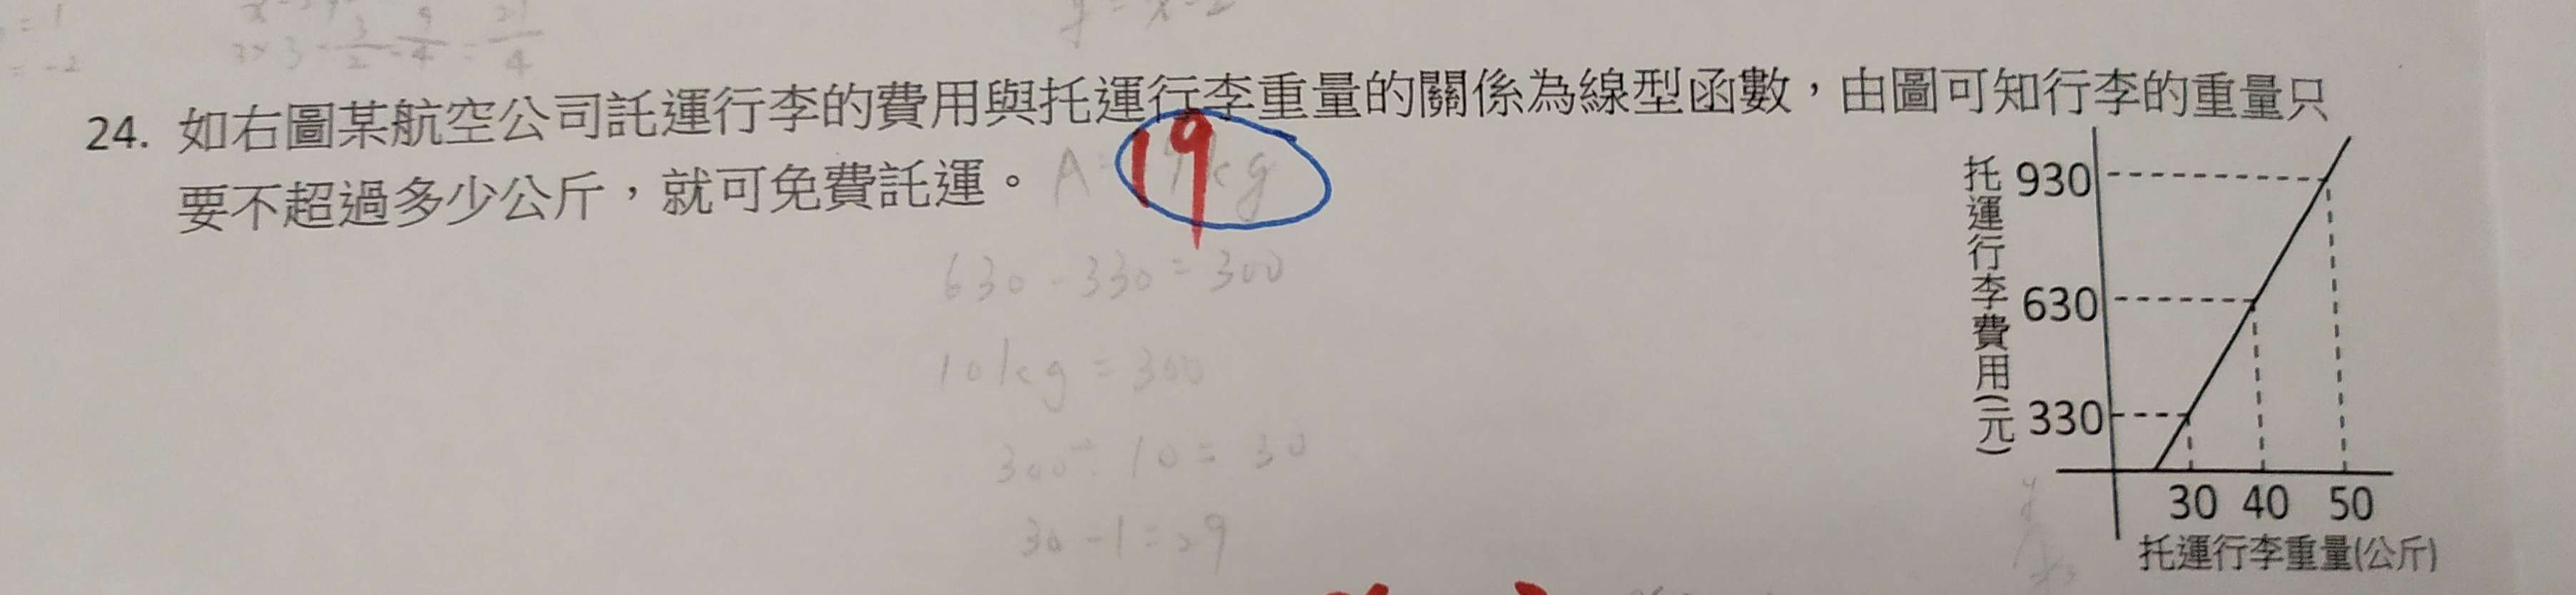 y = x - 2
24. 如右圖某航空公司託運行李的費用與托運行李重量的關係為線型函數，由圖可知行李的重量只
要不超過多少公斤，就可免費託運。
19
630 - 330 = 300
10kg = 300
300 ÷ 10 = 30
30 - 1 = 29
托運行李費用(元)
930
630
330
30 40 50
托運行李重量(公斤)